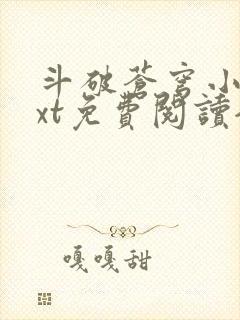 斗破蒼穹小
xt免費閱讀
嘎嘎甜